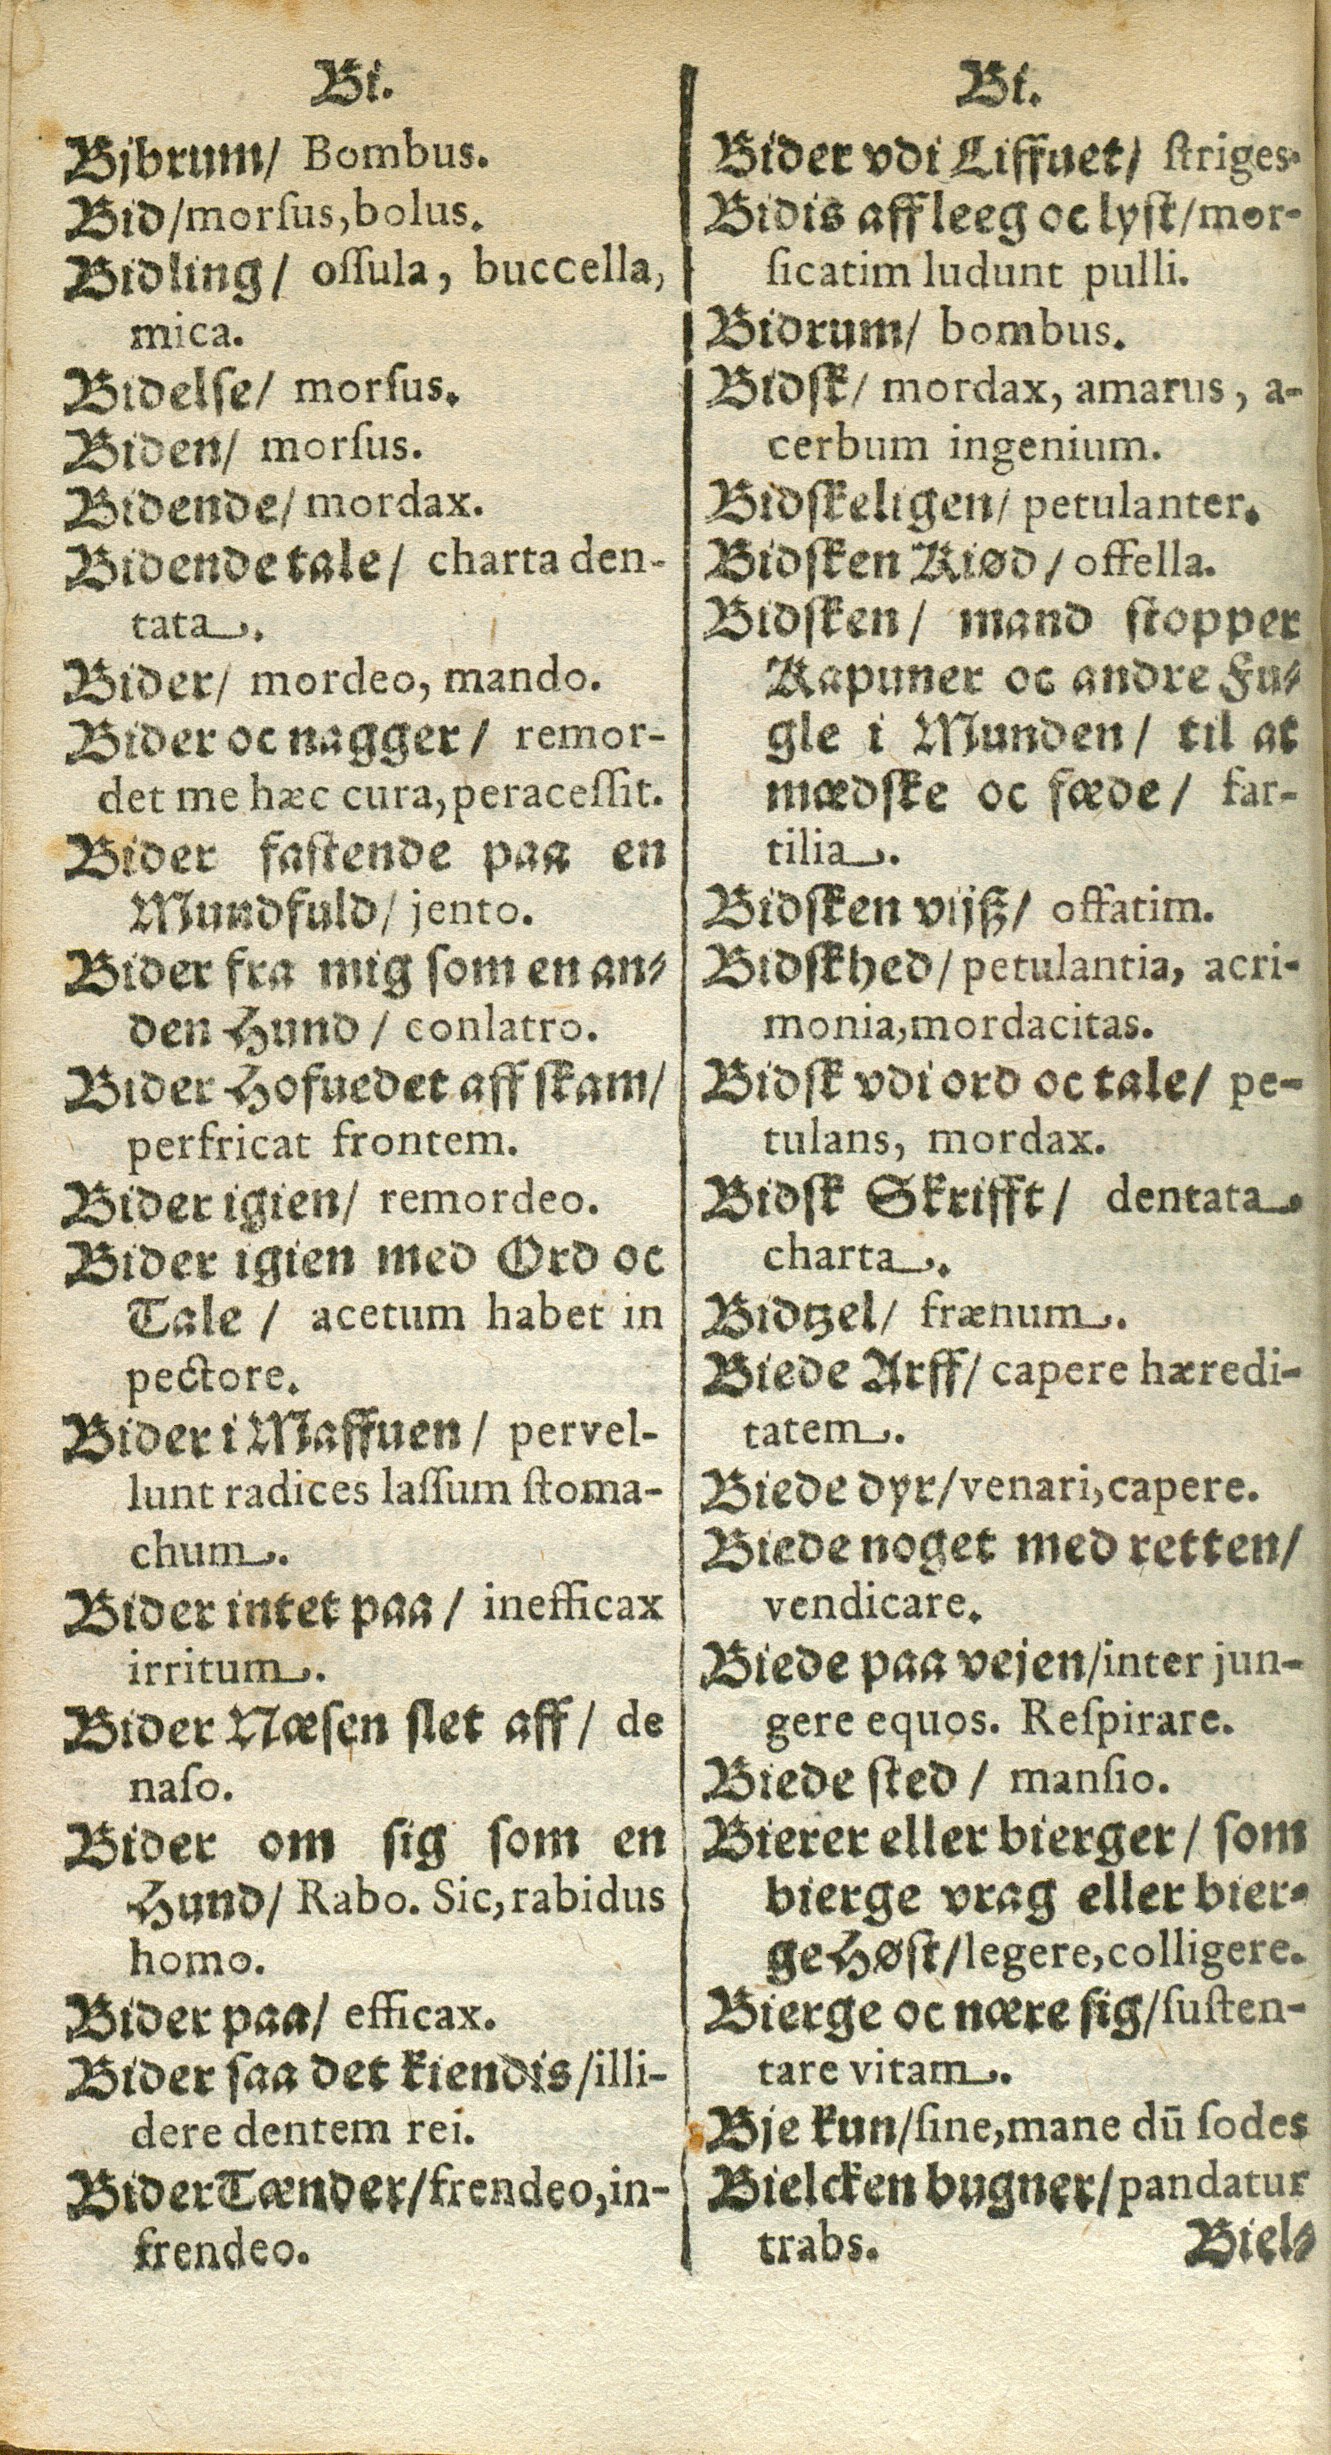 Bi.
Bjbrum/ Bombus.
Bid/morſus,bolus.
Bidling/ oſſula, buccella,
mica.
Bidelſe/ morſus.
Biden/ morſus.
Bidende/mordax.
Bidende tale/ charta den-
tata.
Bider/ mordeo, mando.
Bider oc nagger/ remor-
det me hæc cura,peraceſſit.
Bider faſtende paa en
Mundfuld/ jento.
Bider fra mig ſom en an-
den Hund/ conlatro.
Bider Hofuedet aff ſkam/
perfricat frontem.
Bider igien/ remordeo.
Bider igien med Ord oc
Tale/ acetum habet in
pectore.
Bider i Maffuen/ pervel-
lunt radices laſſum ſtoma-
chum.
Bider intet paa/ inefficax
irritum.
Bider Næſen ſlet aff/ de
naſo.
Bider om ſig ſom en
Hund/ Rabo. Sic,rabidus
homo.
Bider paa/ efficax.
Bider ſaa det kiendis/illi-
dere dentem rei.
Bider Tænder/frendeo,in-
frendeo.
Bi.
Bider vdi Liffuet/ ſtriges.
Bidis aff leeg oc lyſt/mor-
ſicatim ludunt pulli.
Bidrum/ bombus.
Bidſk/ mordax, amarus, a-
cerbum ingenium.
Bidſkeligen/ petulanter.
Bidſken Kiød/ offella.
Bidſken/ mand ſtopper
Kapuner oc andre Fu-
gle i Munden/ til at
mædſke oc føde/ far-
tilia.
Bidſken vijß/ offatim.
Bidſkhed/petulantia, acri-
monia,mordacitas.
Bidſk vdi ord oc tale/ pe-
tulans, mordax.
Bidſk Skrifft/ dentata
charta.
Bidtzel/ frænum.
Biede Arff/ capere hæredi-
tatem.
Biede dyr/venari,capere.
Biede noget med retten/
vendicare.
Biede paa vejen/inter jun-
gere equos. Reſpirare.
Biede ſted/ manſio.
Bierer eller bierger/ ſom
bierge vrag eller bier-
ge Høſt/legere,colligere.
Bierge oc nære ſig/ſuſten-
tare vitam.
Bje kun/ſine,mane dū ſodes
Bielcken bugner/pandatur
trabs.
Biel-